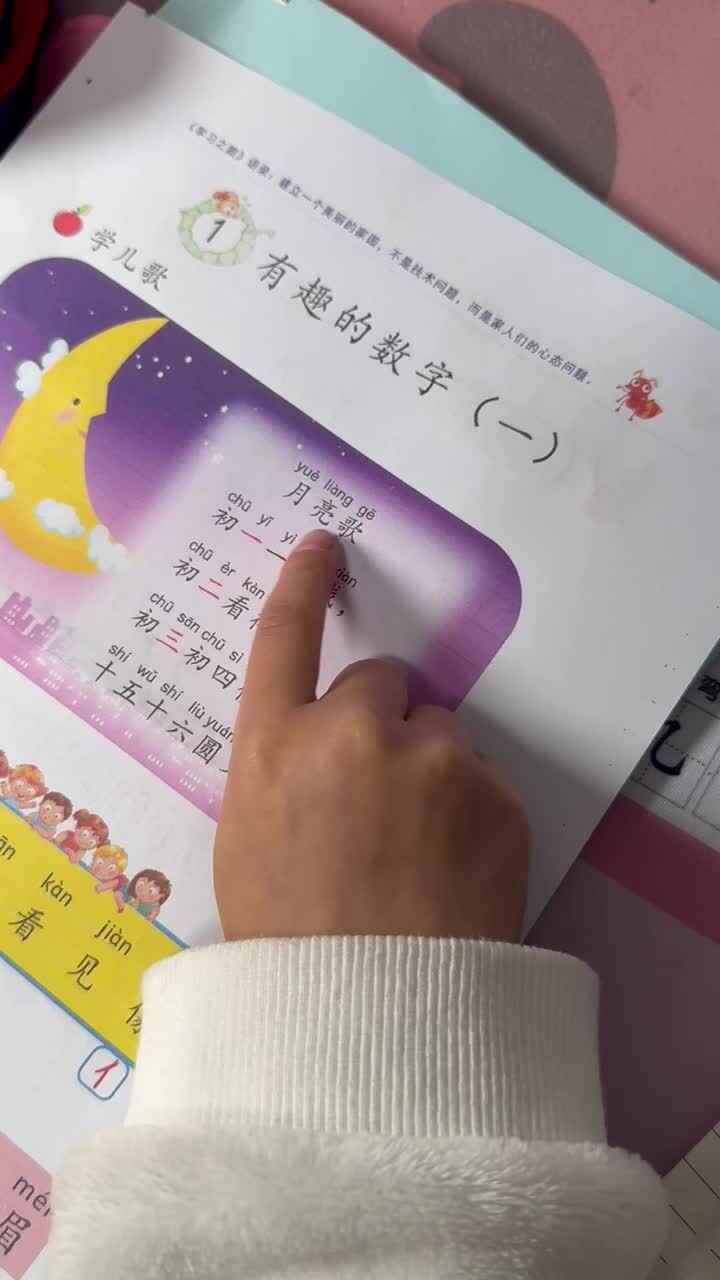 《学习之道》语录：建立一个美丽的家园，不是技术问题，而是家人们的心态问题。
1
有趣的数字（一）
学儿歌
yuè liàng gē
月亮歌
chū yī yì
初一一
chū èr kàn
初二看
chū sān chū sì
初三初四
shí wǔ shí liù yuán
十五十六圆
kàn jiàn
看见
1
眉